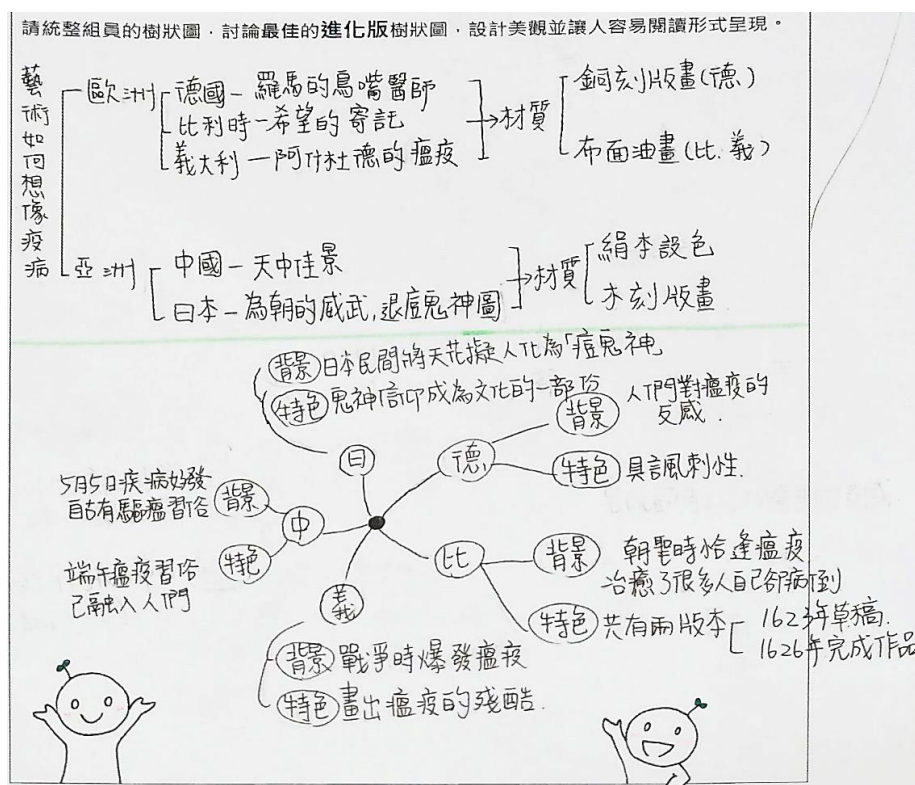 請統整組員的樹狀圖,討論最佳的進化版樹狀圖,設計美觀並讓人容易閱讀形式呈現。
藝術如何想像疫病
歐洲
德國-羅馬的鳥嘴醫師
比利時-希望的寄託
義大利-阿什杜德的瘟疫
材質
銅刻版畫(德)
布面油畫(比.義)
亞洲
中國-天中佳景
日本-為朝的威武,退痘鬼神圖
材質
絹本設色
木刻版畫
日
背景 日本民間將天花擬人化為「痘鬼神」
特色 鬼神信仰成為文化的一部份
德
背景 人們對瘟疫的
反感.
特色 具諷刺性.
中
背景 5月5日疾病好發
自古有驅瘟習俗
特色 端午瘟疫習俗
已融入人們
比
背景 朝聖時恰逢瘟疫
治癒了很多人自己卻病倒
特色 共有兩版本
1623年草稿.
1626年完成作品
義
背景 戰爭時爆發瘟疫
特色 畫出瘟疫的殘酷.